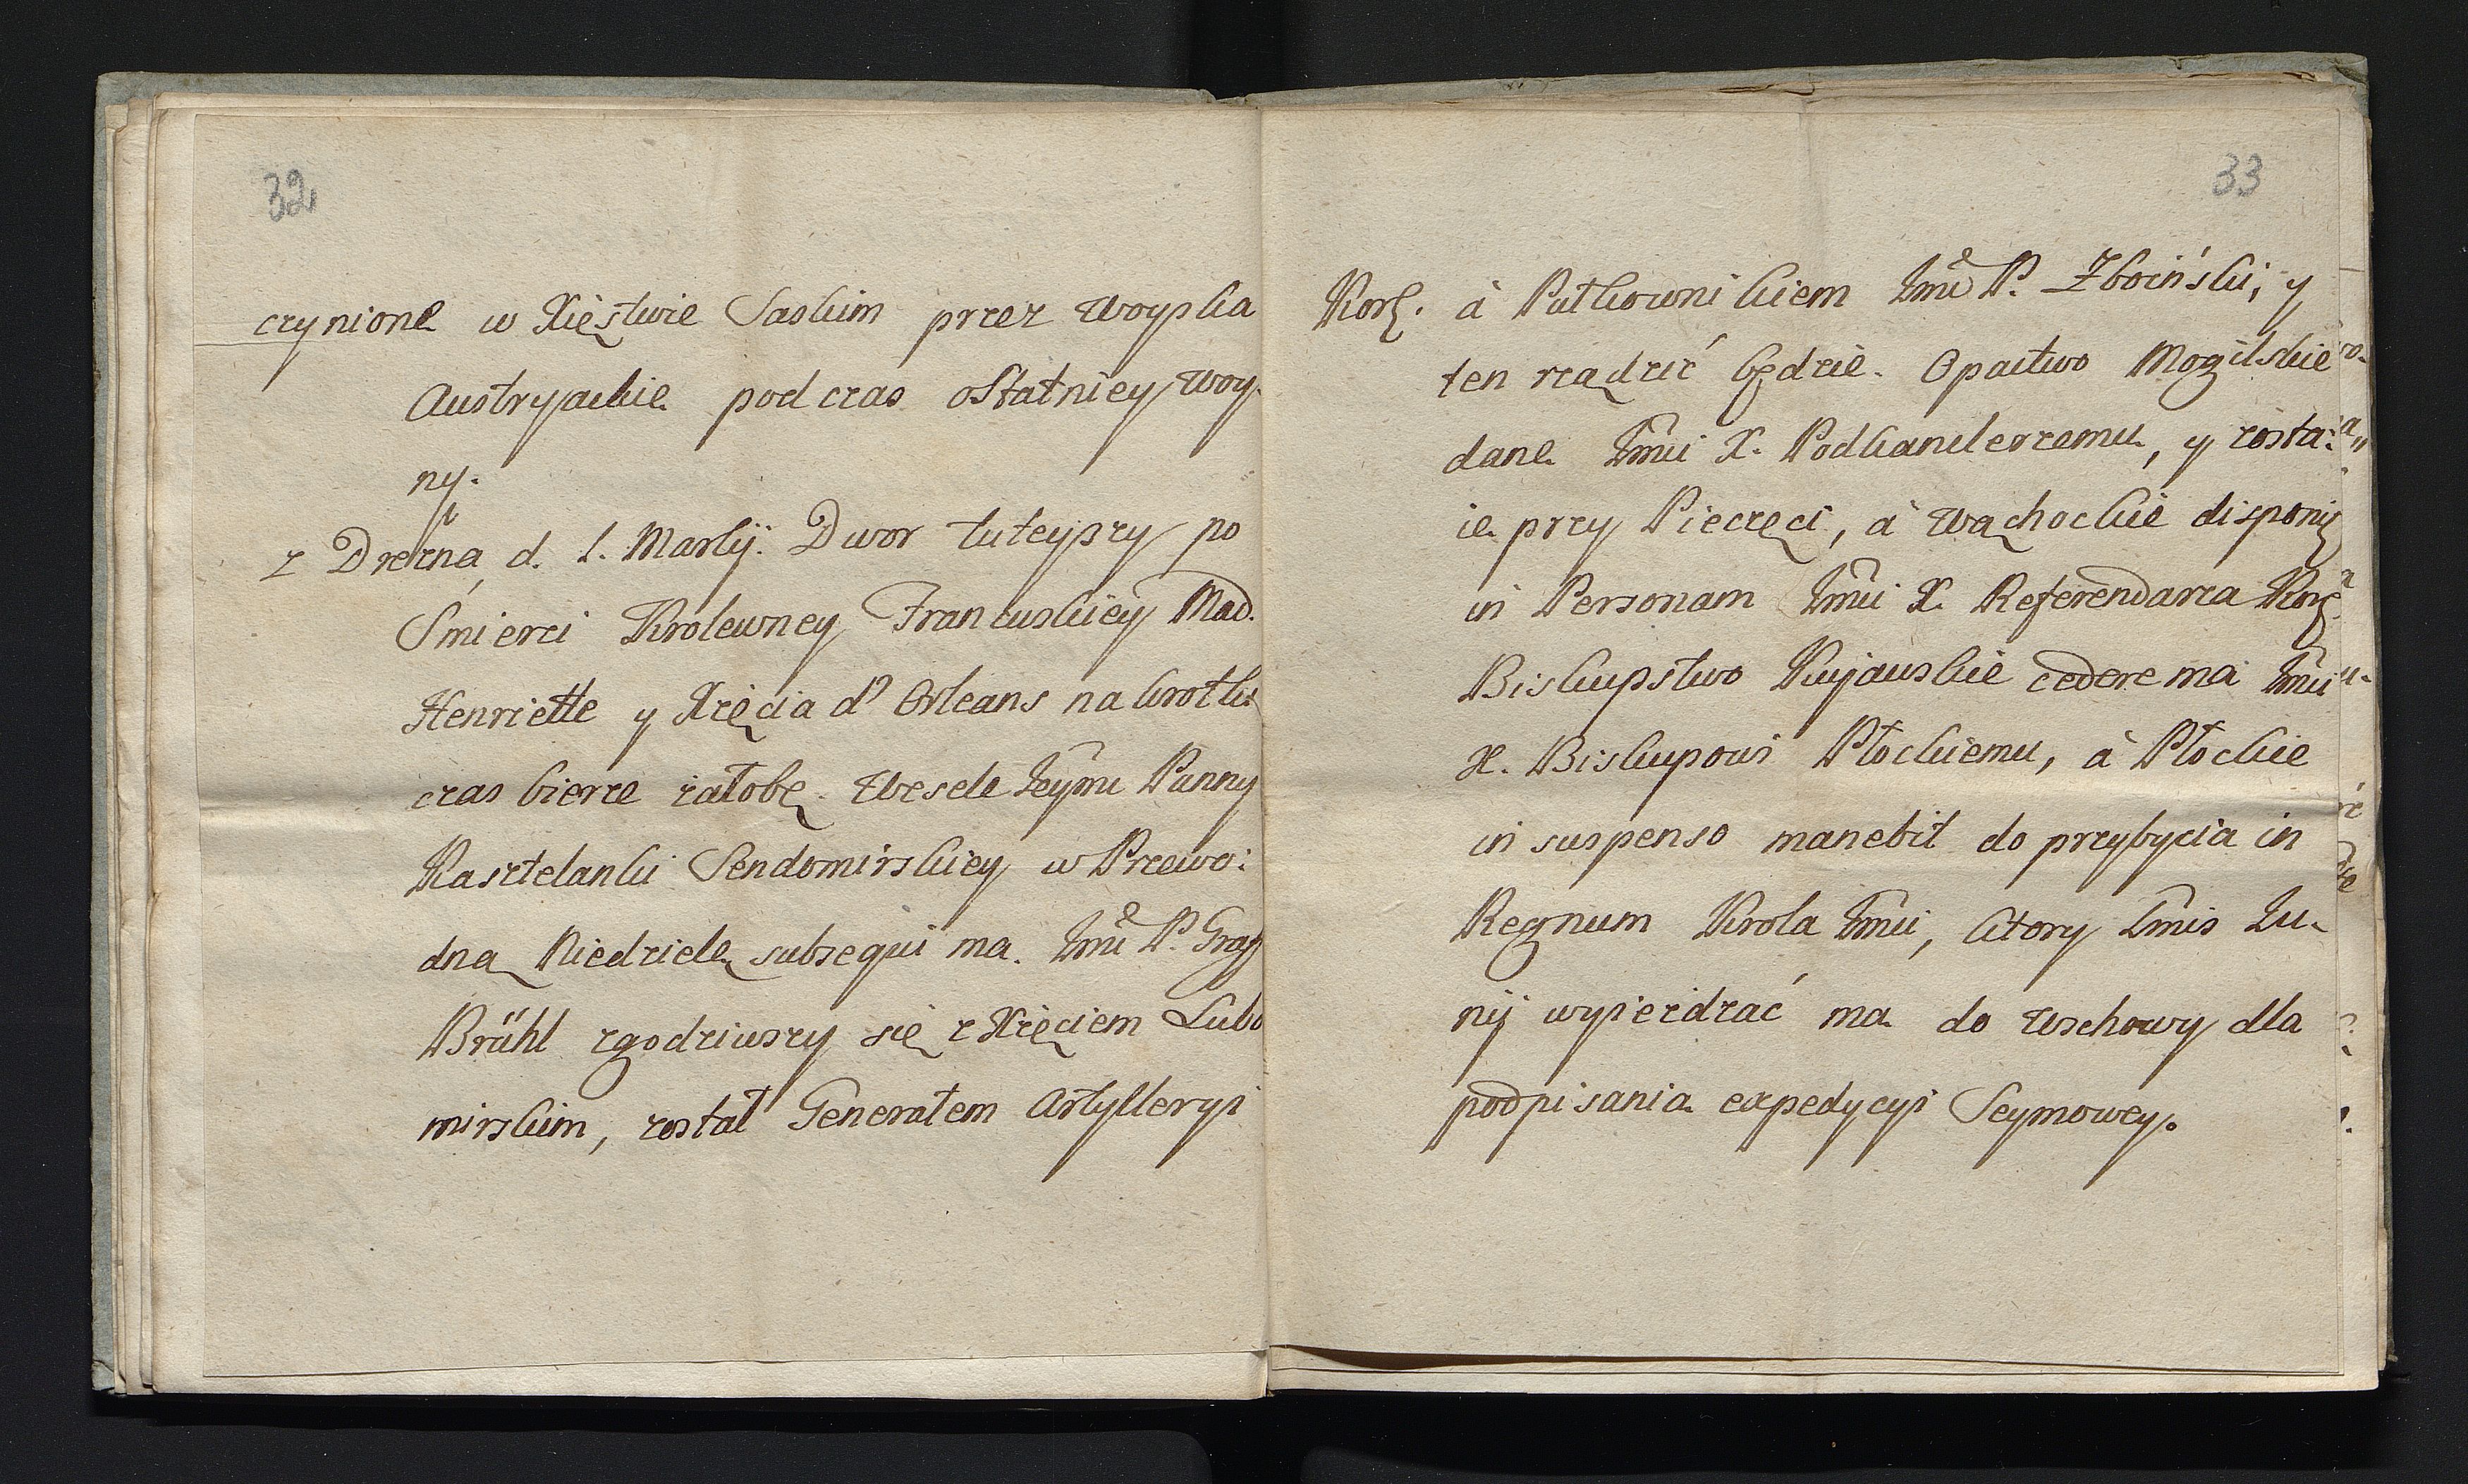 32
czynione w Xięstwie Saskim przez Woyska
Austryackie podczas ostatniey Woy-
ny.
z Drezna d. 1. Martij. Dwor tuteyszy po
Smierci Krolewney Francuskiey Mad.
Henriette y Xięcia d'Orleans na krotki
czas bierze żałobę. Wesele Jeymć Panny
Kasztelanki Sendomirskiey w Przewo:
dną Niedzielę subsequi ma. Jmć P. Graf
Brühl zgodziwszy się z Xięciem Lubo
mirskim, został Generałem Artylleryi
33
Kor. à Pułkownikiem Jmć P. Zboiński, y
ten rządzić będzie. Opactwo Mogilskie
dane Jmći X. Podkanclerzemu, y zosta:
ie przy Pieczęci, à Wąchockie disponi
in Personam Jmći X. Referendarza Kor.
Biskupstwo Kujawskie cedere ma Jmći
X. Biskupowi Płockiemu, à Płockie
in suspenso manebit do przybycia in
Regnum Krola Jmći, ktory Imis Ju-
nij wyieżdzać ma do Wschowy dla
podpisania expedycyi Seymowey.